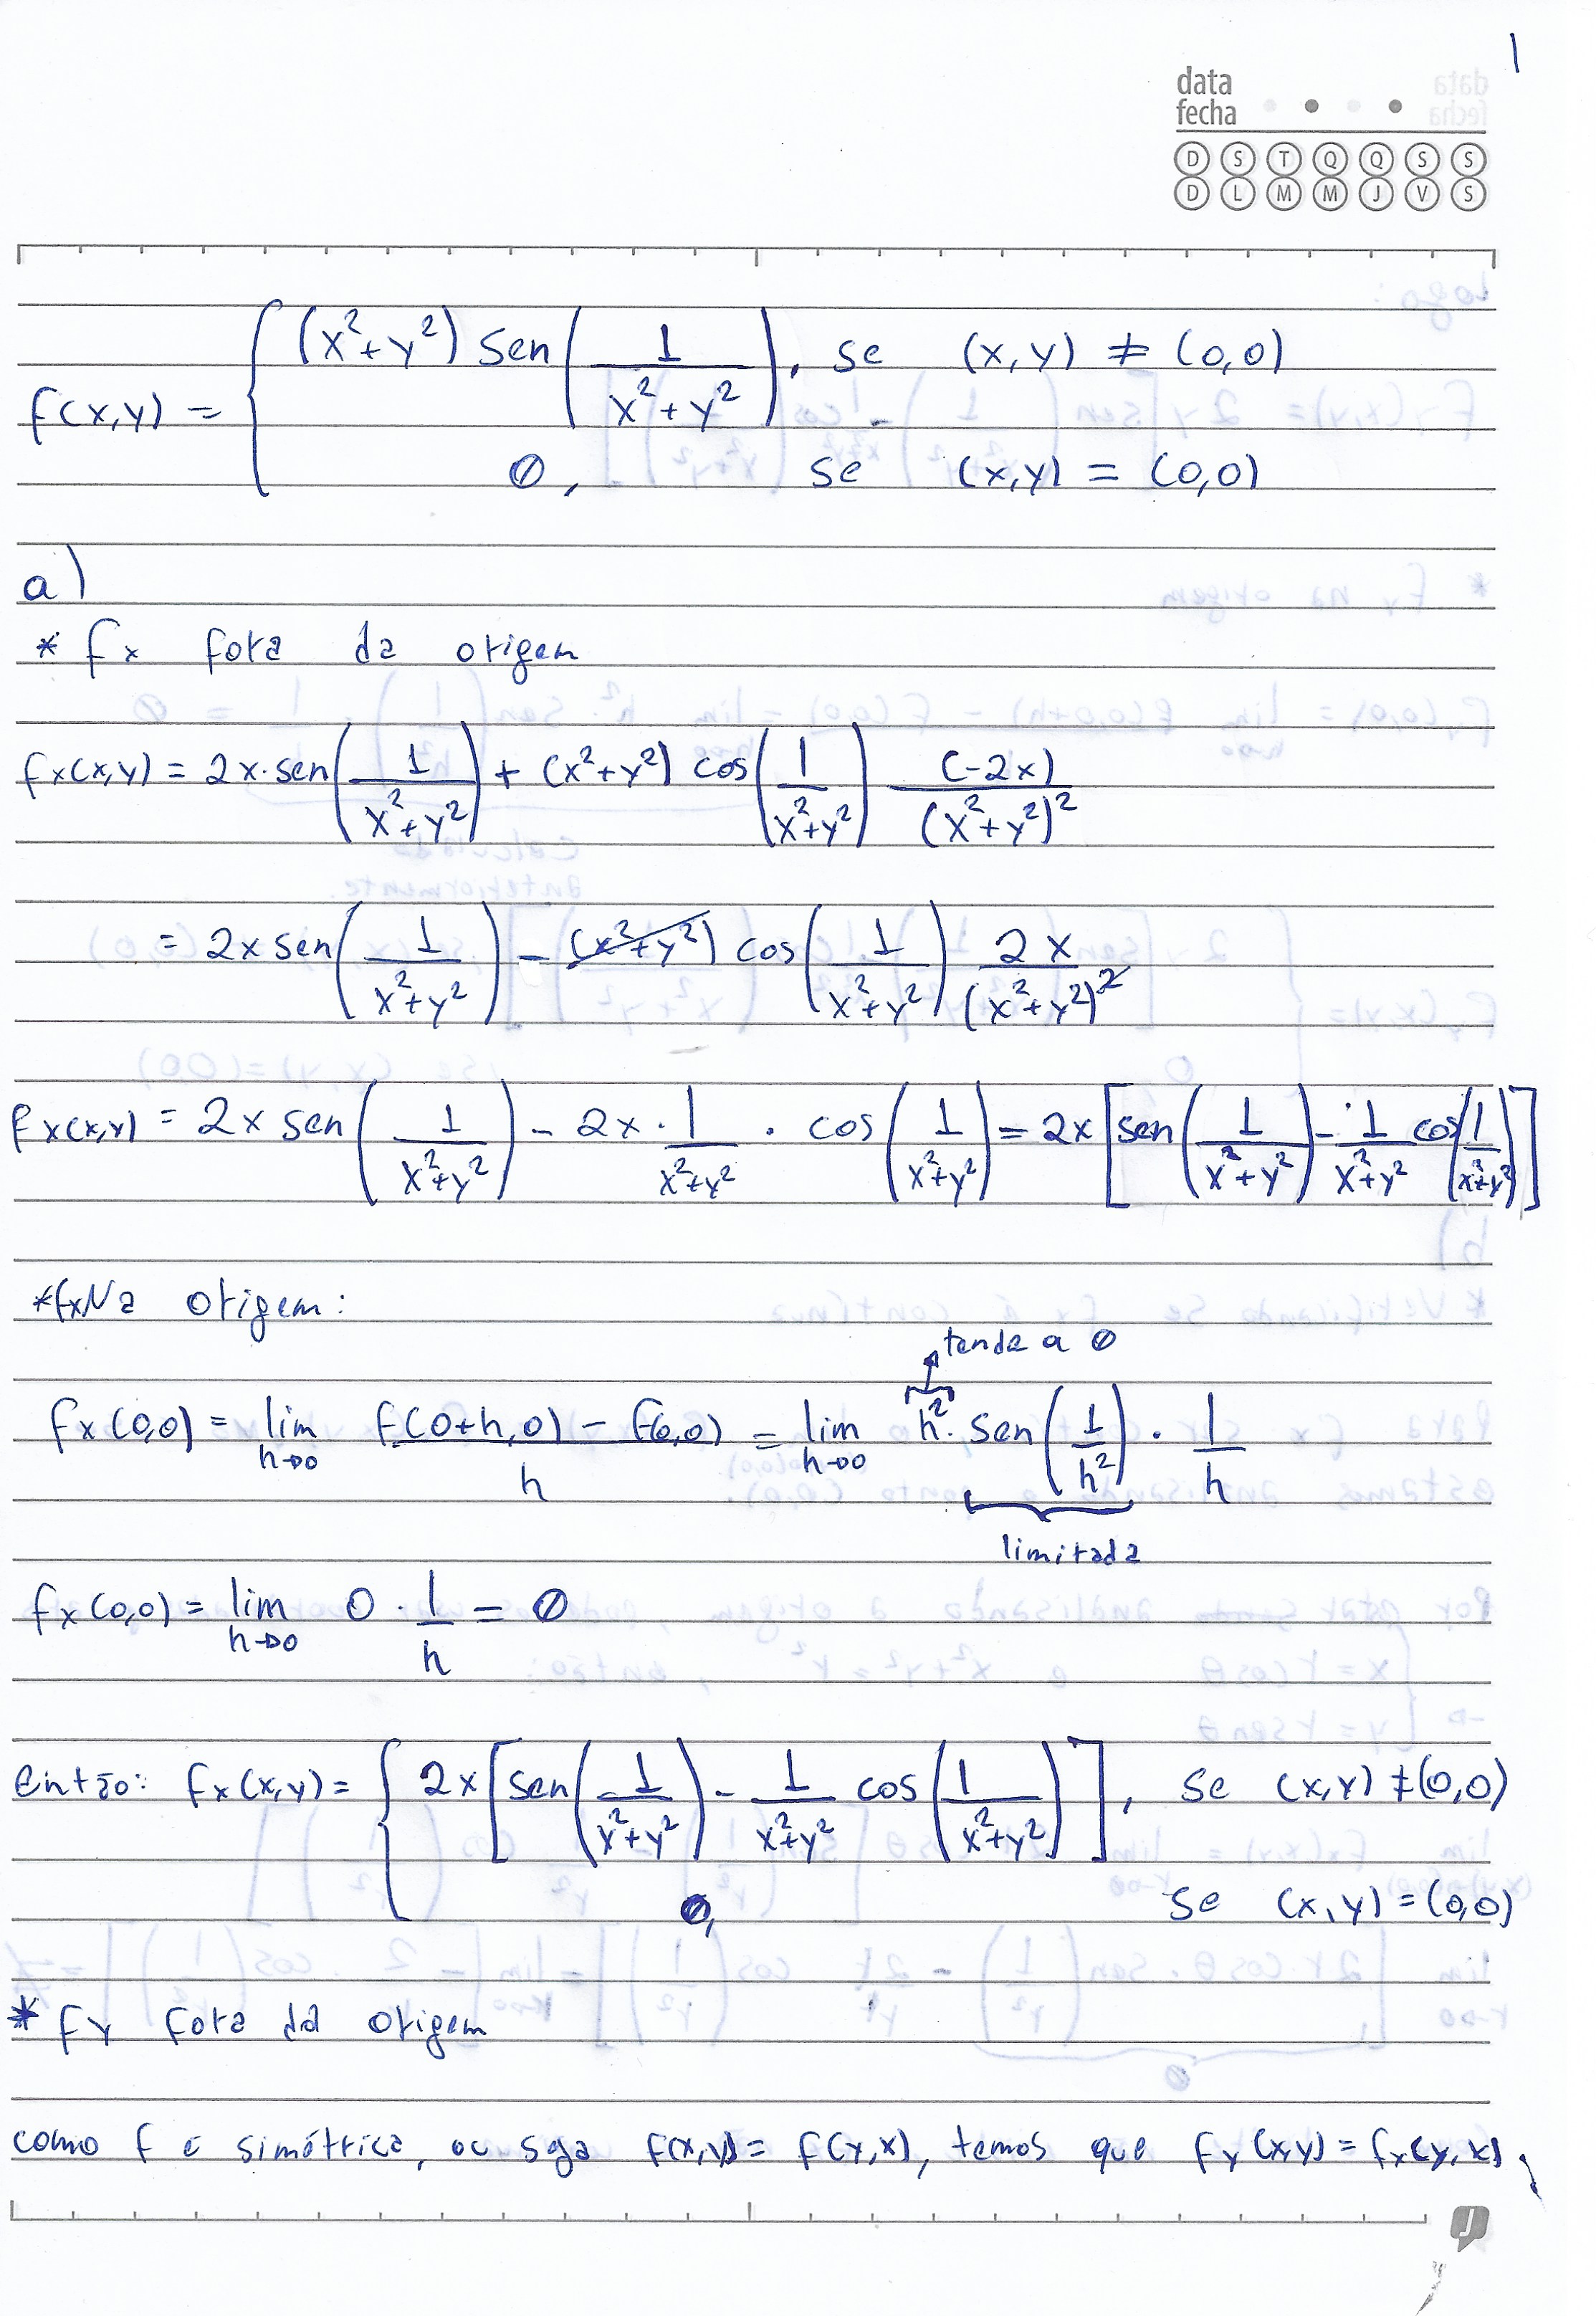 1
data
fecha
D S T Q Q S S
D L M M J V S
f(x,y) = { (x²+y²) sen(1/(x²+y²)), se (x,y) ≠ (0,0)
0, se (x,y) = (0,0)
a)
* fx fora da origem
fx(x,y) = 2x·sen(1/(x²+y²)) + (x²+y²) cos(1/(x²+y²)) (-2x)/(x²+y²)²
= 2x sen(1/(x²+y²)) - (x²+y²) cos(1/(x²+y²)) 2x/(x²+y²)²
fx(x,y) = 2x sen(1/(x²+y²)) - 2x · 1/(x²+y²) · cos(1/(x²+y²)) = 2x [sen(1/(x²+y²)) - 1/(x²+y²) cos(1/(x²+y²))]
*fx Na origem:
tende a 0
fx(0,0) = lim h→0 (f(0+h,0) - f(0,0))/h = lim h→0 h²· sen(1/h²) · 1/h
limitada
fx(0,0) = lim h→0 0 · 1/h = 0
então: fx(x,y) = { 2x [sen(1/(x²+y²)) - 1/(x²+y²) cos(1/(x²+y²))], se (x,y) ≠ (0,0)
0, se (x,y) = (0,0)
* fy fora da origem
como f é simétrica, ou seja f(x,y) = f(y,x), temos que fy(x,y) = fx(y,x),
J